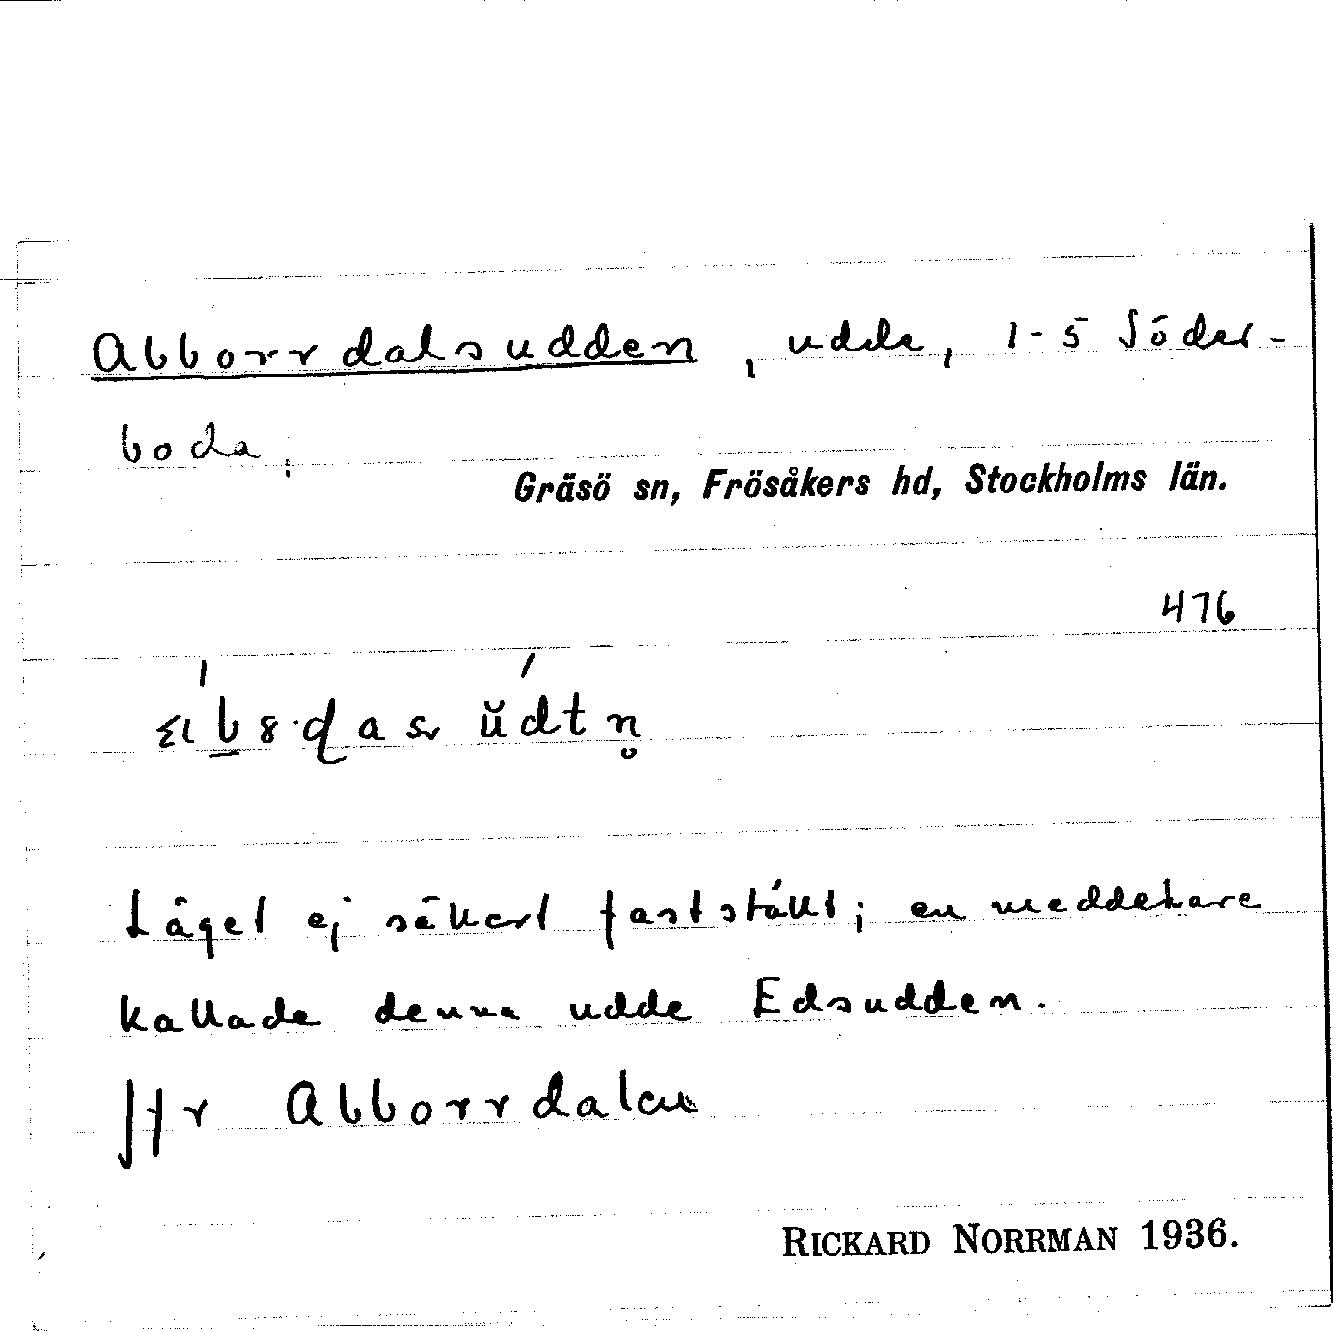 Abborrdalsudden, udde, 1-5 Söder-
boda.
Gräsö sn, Frösåkers hd, Stockholms län.
476
Läget ej säkert fastställt; en meddelare
kallade denna udde Edsudden.
Jfr Abborrdalen
RICKARD NORRMAN 1936.